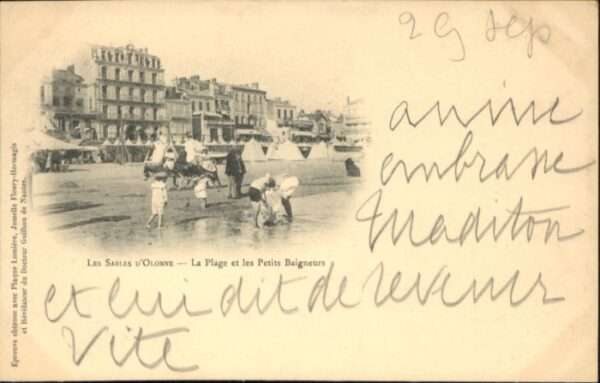 29 Sep
anine
embrasse
Maditon
LES SABLES D'OLONNE — La Plage et les Petits Baigneurs
et lui dit de revenir
Vite
Epreuve obtenue avec Plaque Lumière, Jumelle Fleury-Hermagis
et Révélateur du Docteur Guilhou de Nantes.